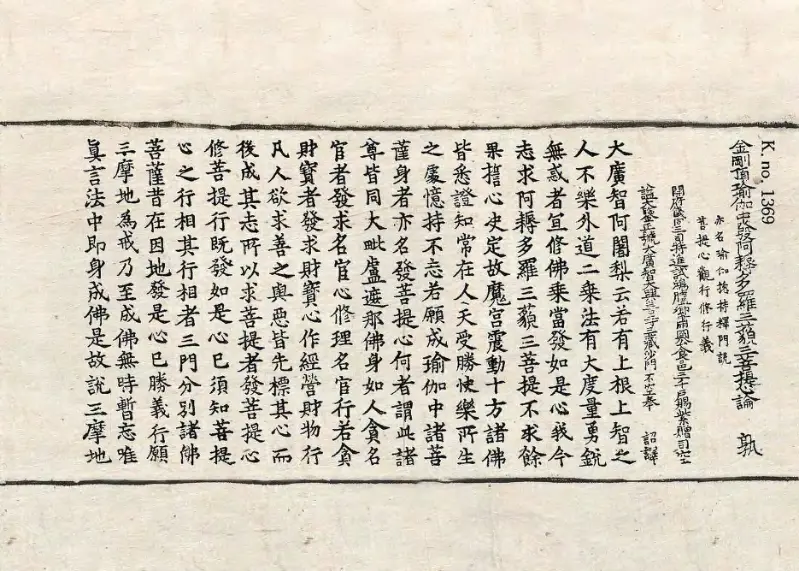 K. no. 1369
金剛頂瑜伽中發阿耨多羅三藐三菩提論 孰
亦名瑜伽揔持釋門說
菩提心觀行修行義
開府儀同三司特進試鴻臚卿肅國公食邑三千戶賜紫贈司空
謚大鑒正號大廣智大興善寺三藏沙門不空奉 詔譯
大廣智阿闍梨云若有上根上智之
人不樂外道二乘法有大度量勇銳
無惑者宜修佛乘當發如是心我今
志求阿耨多羅三藐三菩提不求餘
果誓心決定故魔宮震動十方諸佛
皆悉證知常在人天受勝快樂所生
之處憶持不忘若願成瑜伽中諸菩
薩身者亦名發菩提心何者謂此諸
尊皆同大毗盧遮那佛身如人貪名
官者發求名官心修理名官行若貪
財寶者發求財寶心作經營財物行
凡人欲求善之與惡皆先標其心而
後成其志所以求菩提者發菩提心
修菩提行既發如是心已須知菩提
心之行相其行相者三門分別諸佛
菩薩昔在因地發是心已勝義行願
三摩地為戒乃至成佛無時暫忘唯
真言法中即身成佛是故說三摩地